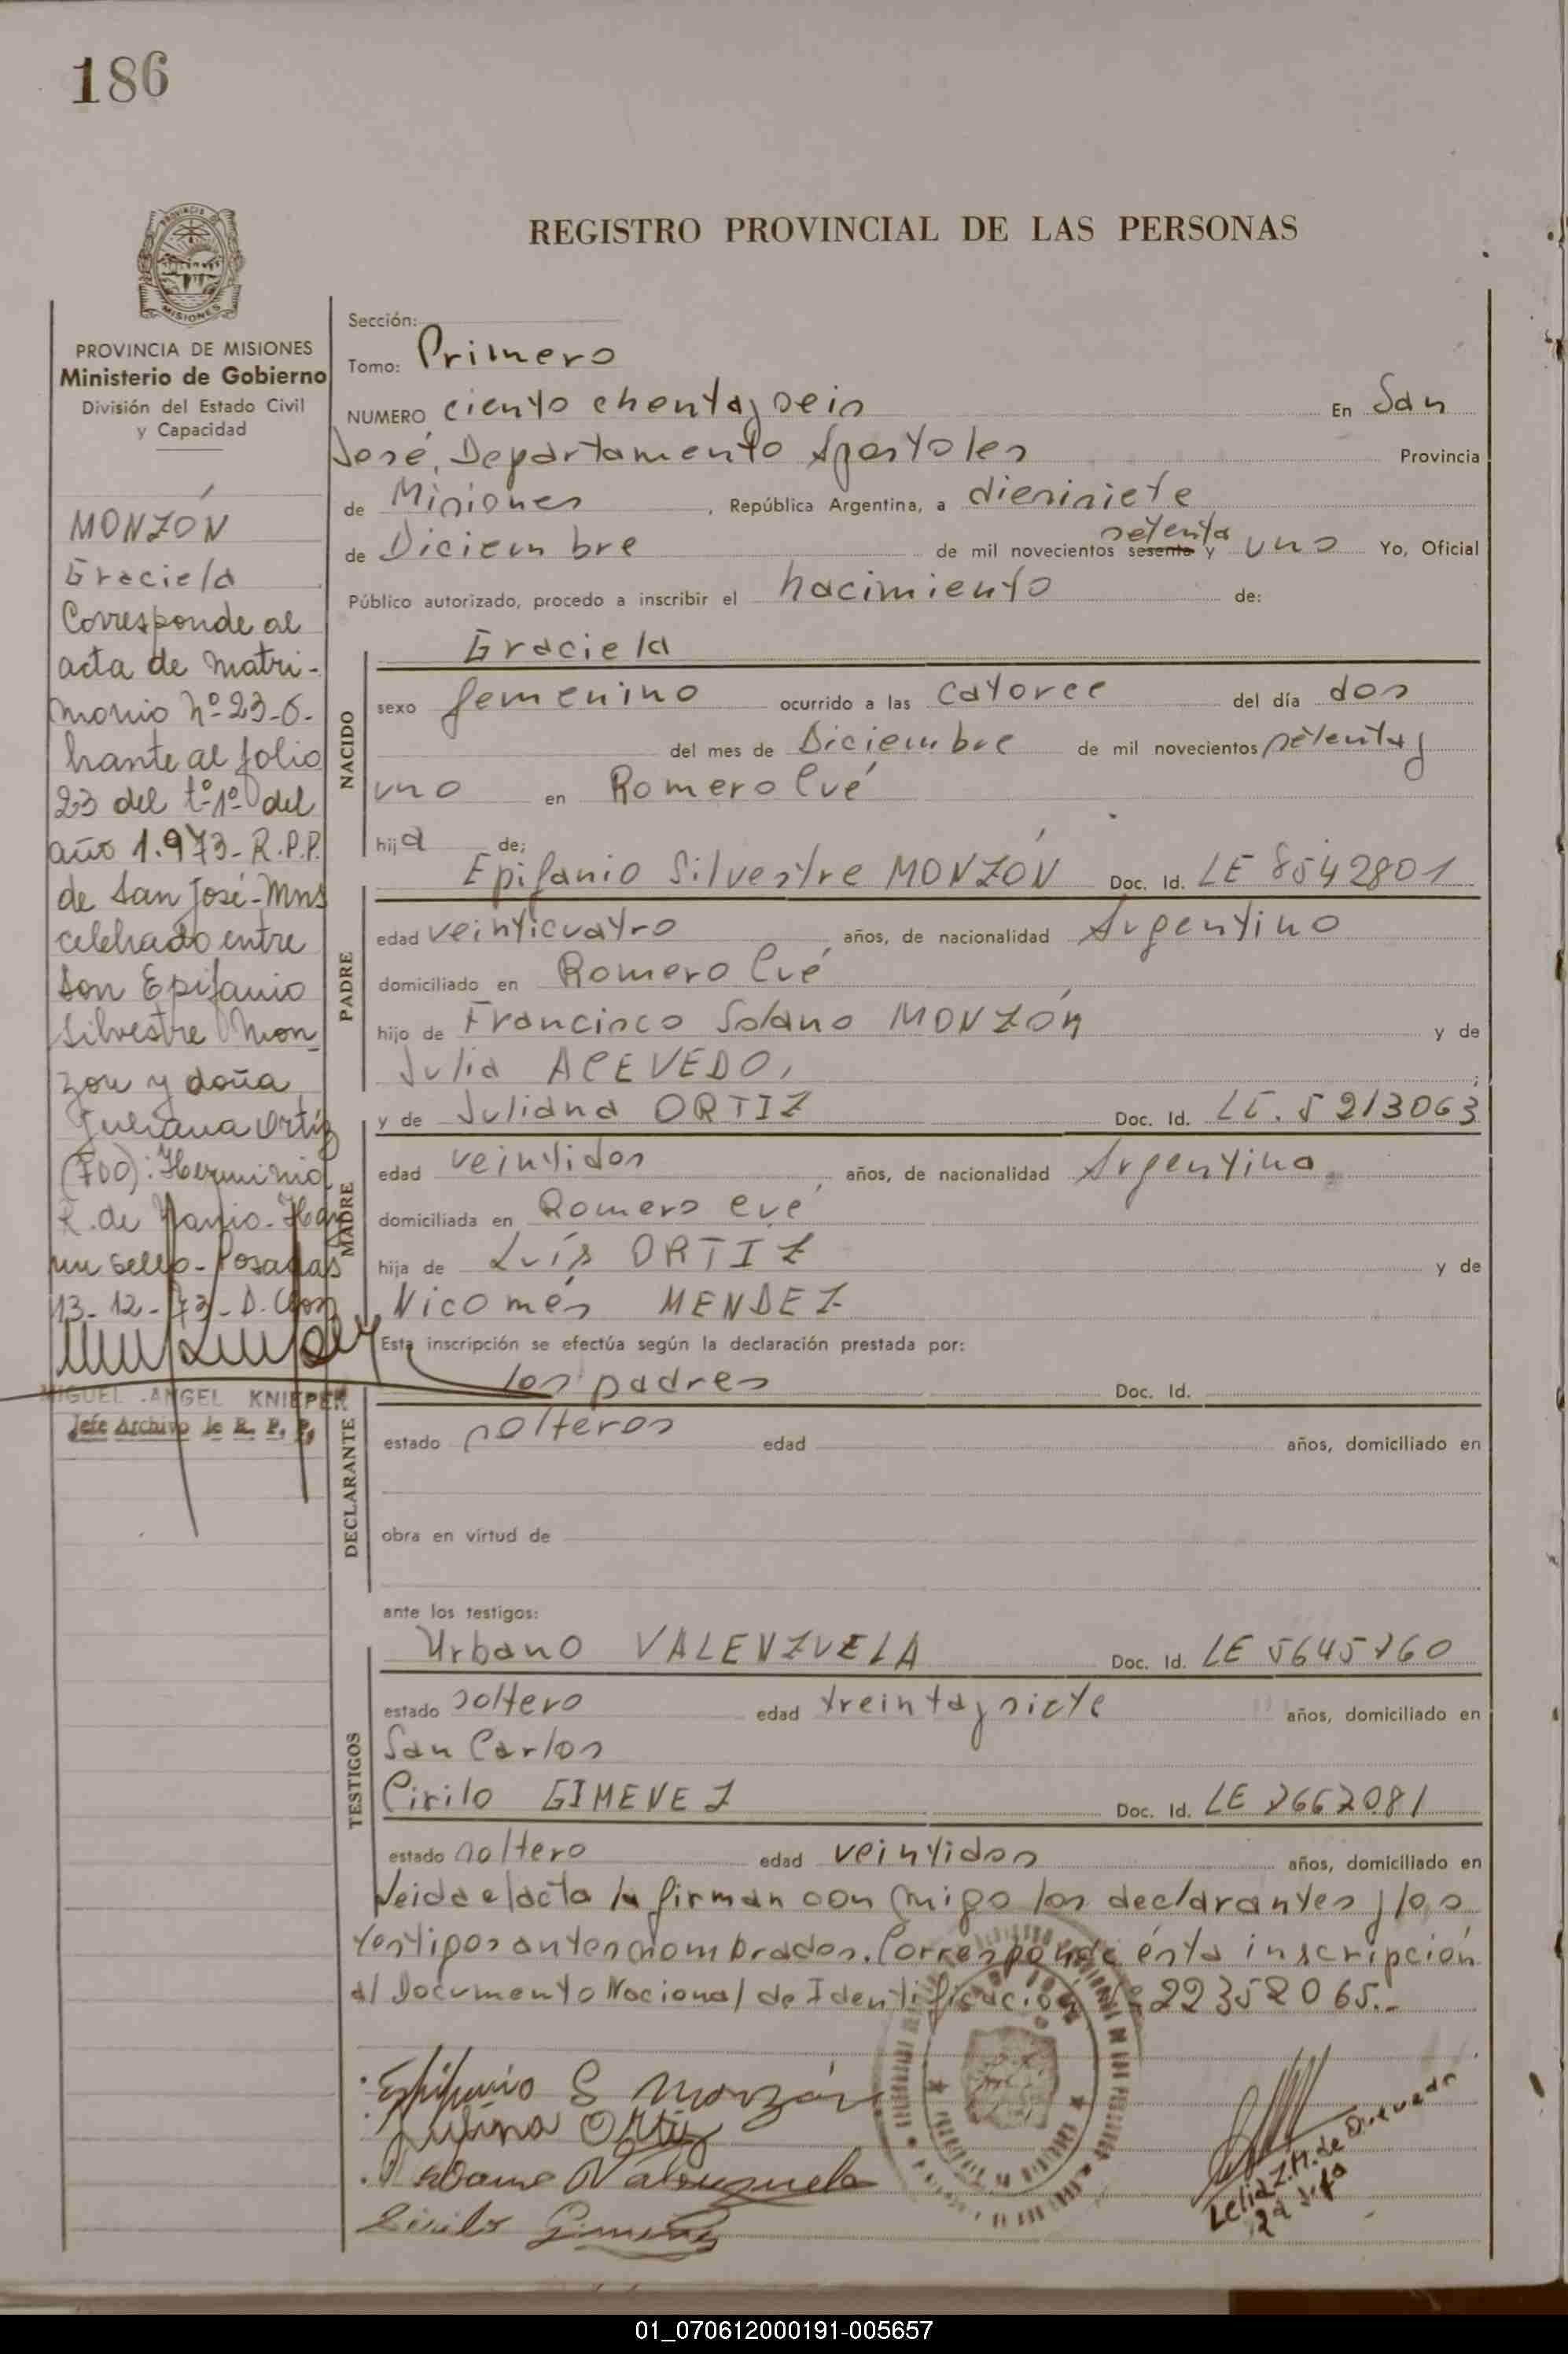 186
REGISTRO PROVINCIAL DE LAS PERSONAS
MISIONES
PROVINCIA DE MISIONES
Ministerio de Gobierno
División del Estado Civil
y Capacidad
MONZÓN
Graciela
Corresponde al
acta de matri-
monio Nº 23-O-
brante al folio
23 del tº 1º del
año 1.973- R.P.P.
de San José-Mns
celebrado entre
don Epifanio
Silvestre Mon
zon y doña
Juliana Ortiz
(FDO): Herminia
R. de - Hay
un sello - Posadas
13-12-73-D.
MIGUEL ANGEL KNIEPER
Jefe Archivo de R. P. P.
Sección:
Tomo: Primero
NUMERO ciento chentay seis En San
José, Departamento Apostoles Provincia
de Misiones, República Argentina, a diesisiete
de Diciembre de mil novecientos sesenta setenta y uno Yo, Oficial
Público autorizado, procedo a inscribir el nacimiento de:
NACIDO
Graciela
sexo femenino ocurrido a las catorce del día dos
del mes de Diciembre de mil novecientos setentay
uno en Romero Cué
hija de;
PADRE
Epifanio Silvestre MONZÓN Doc. Id. LE 8542801
edad veinticuatro años, de nacionalidad Argentino
domiciliado en Romero Cué
hijo de Francisco Solano MONZÓN y de
Julia ACEVEDO, ;
MADRE
y de Juliana ORTIZ Doc. Id. LC. 5213063
edad veintidos años, de nacionalidad Argentina
domiciliada en Romero Cué
hija de Luís ORTIZ y de
Nicomés MENDEZ
Esta inscripción se efectúa según la declaración prestada por:
DECLARANTE
los padres Doc. Id.
estado solteros edad años, domiciliado en
obra en virtud de
ante los testigos:
TESTIGOS
Urbano VALENZUELA Doc. Id. LE 5645760
estado soltero edad treintay siete años, domiciliado en
San Carlos
Cirilo GIMENEZ Doc. Id. LE 7662081
estado soltero edad veintidos años, domiciliado en
Leida el acta la firman con migo los declarantes y los
testigos antes nombrados. Corresponde ésta inscripción
al Documento Nacional de Identificación Nº 22352065.-
Epifanio S Monzón
Ortiz
Urbano Valenzuela
Cirilo Gimenez
Lelia Z.H. de Quevedo
2ª Jefa
01_070612000191-005657